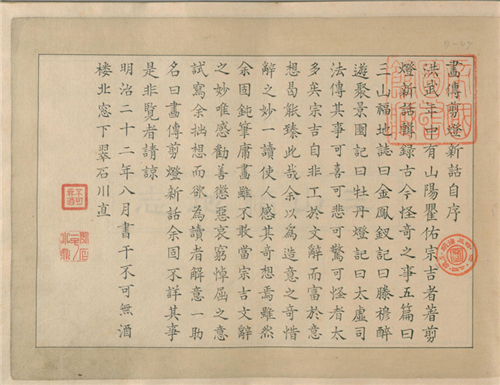 畵傳剪燈新話自序
洪武年中有山陽瞿佑宗吉者著剪
燈新話輯録古今怪奇之事五篇曰
三山福地誌曰金鳳釵記曰滕穆醉
遊聚景園記曰牡丹燈記曰太虛司
法傳其事可喜可悲可驚可怪者太
多矣宗吉自非工於文辭而富於意
想曷能臻此哉余以為造意之奇措
辭之妙一讀使人感其奇想焉雖然
余固鈍筆庸畵雖不敢當宗吉文辭
之妙唯感勸善懲惡哀窮悼屈之意
試寫余拙想而欲為讀者解意一助
名曰畵傳剪燈新話余固不詳其事
是非覽者請諒
明治二十二年八月書于不可無酒
楼北窓下翠石川直